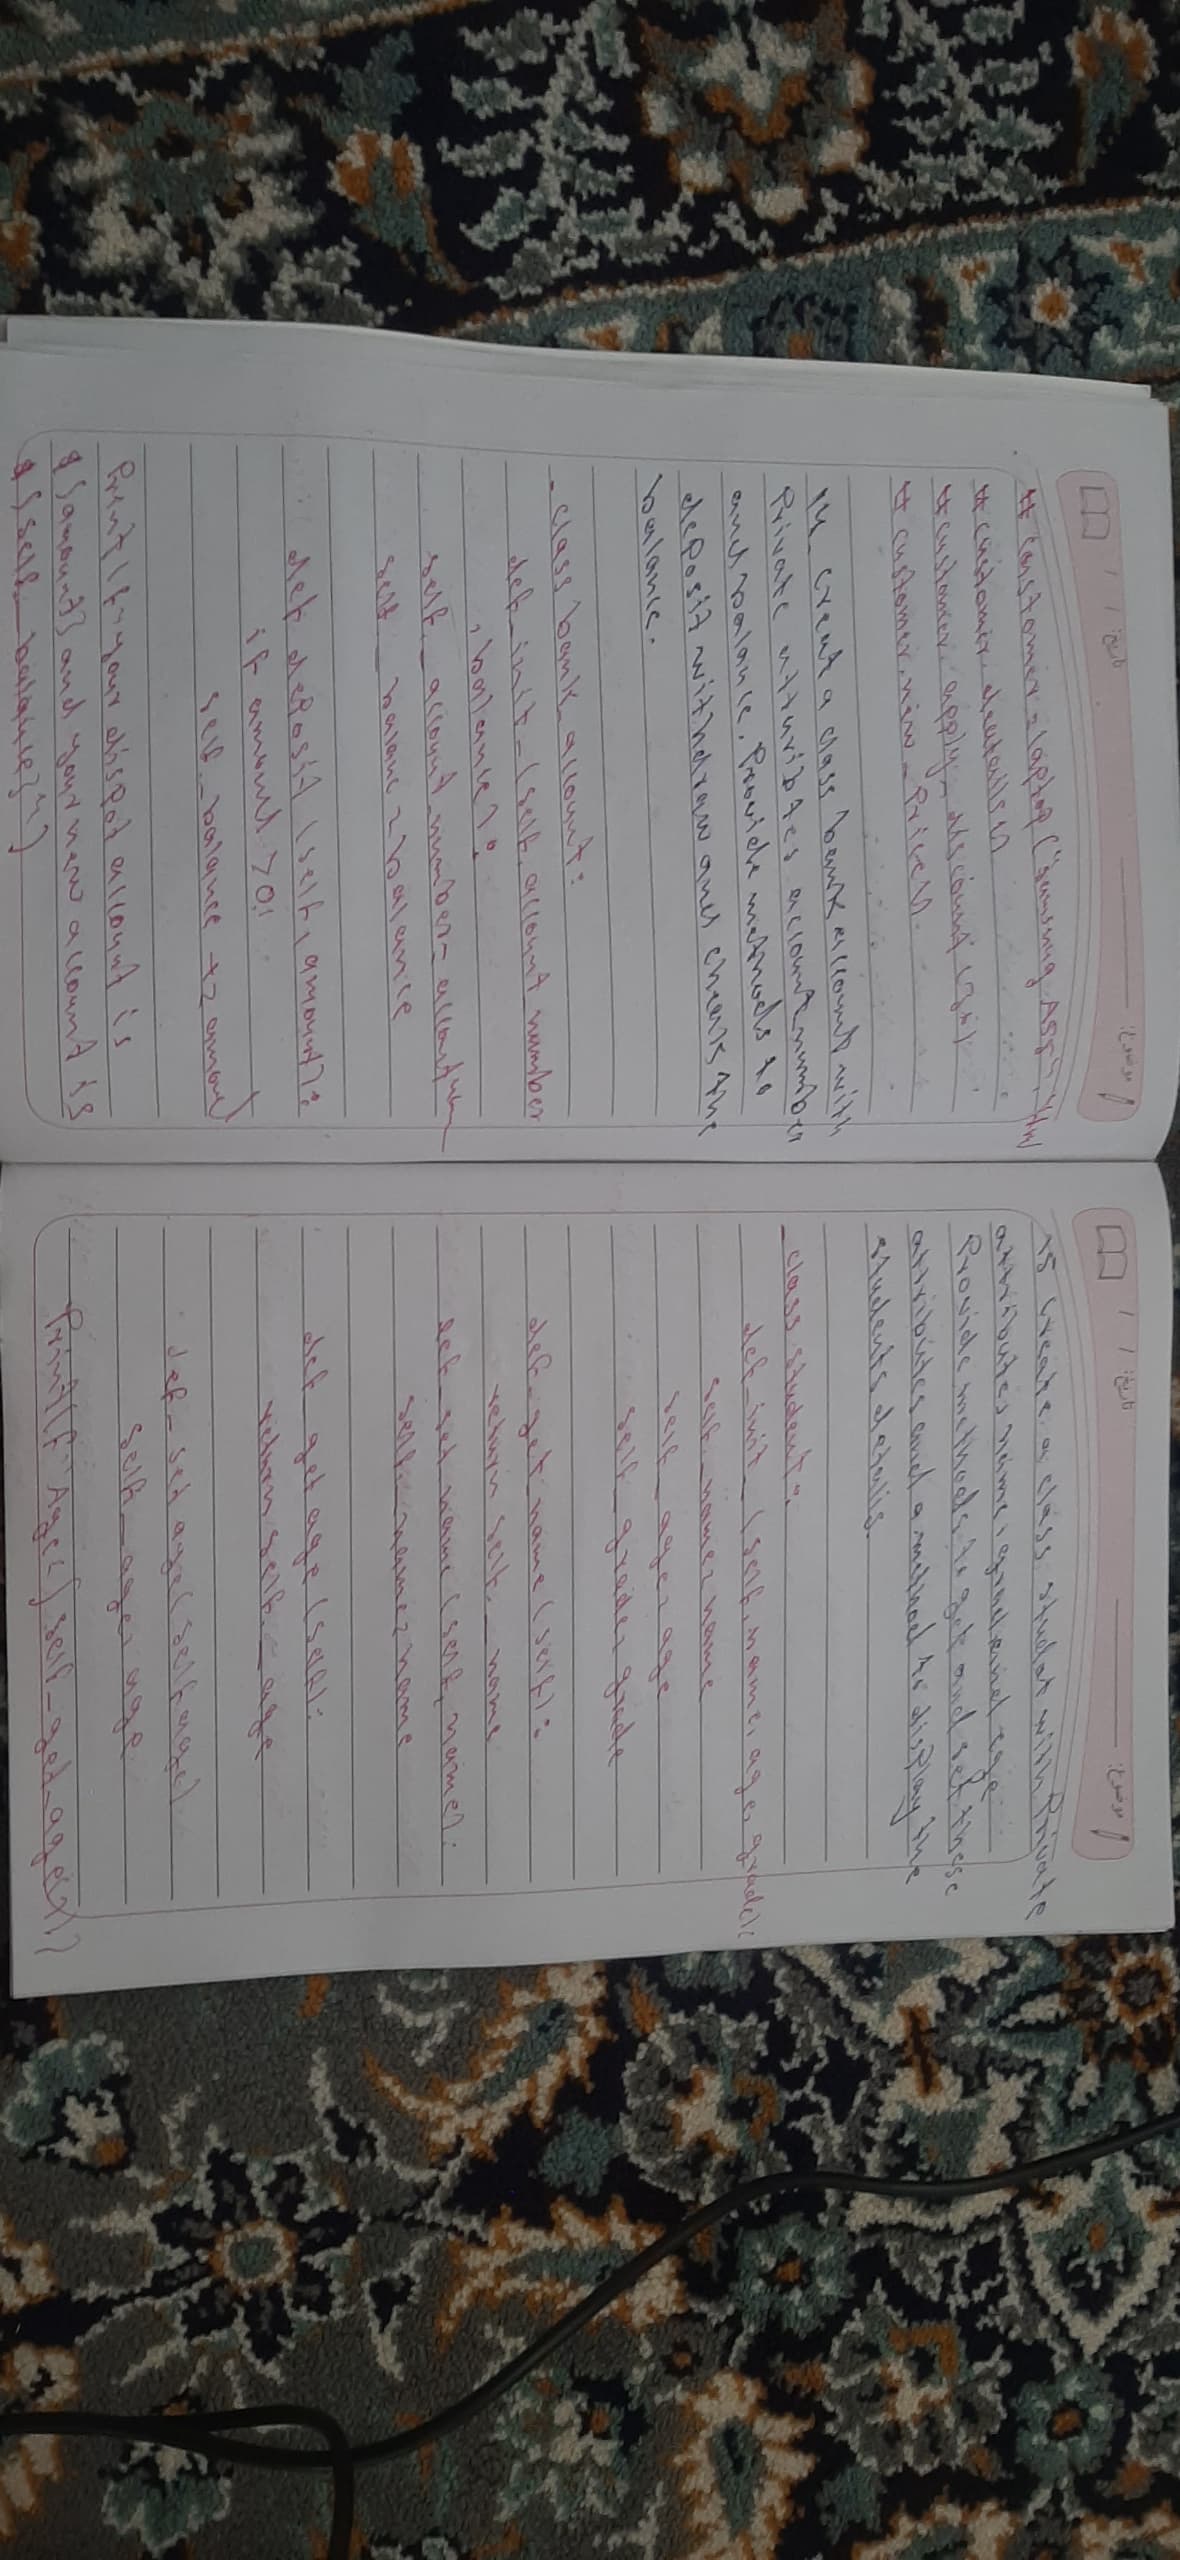 تاریخ: / / موضوع:
# customer = laptop ("samsung A55",
# customer.
# customer. apply_discount (
# customer. new_Price()
14_ Creat a class bank account with
Private atturibtes account number
and balance. Provide methods to
deposit withdraw and cheak the
balance.
- class bank_account:
def_init_(self, account number
, balance):
self._account_number=
self._balanc = balance
def deposit (self, amount):
if amount >0:
self._balance +=
Print(f"your account is
${amount} and your new account is
${self._balance}")
تاریخ: / / موضوع:
15 Create a class studet with Private
attributes name, grad and age
Provide methods to get and set these
attributes and a method to display the
students details.
- class student:
def_init_(self, name, age, grade):
self._name= name
self_age= age
self_grade= grade
def_get name (self):
return self._name
def_set name (self, name):
self._name= name
def_get age (self):
return self._age
def_set age (self, age)
self._age= age
Print(f"Age:{self_get_age()